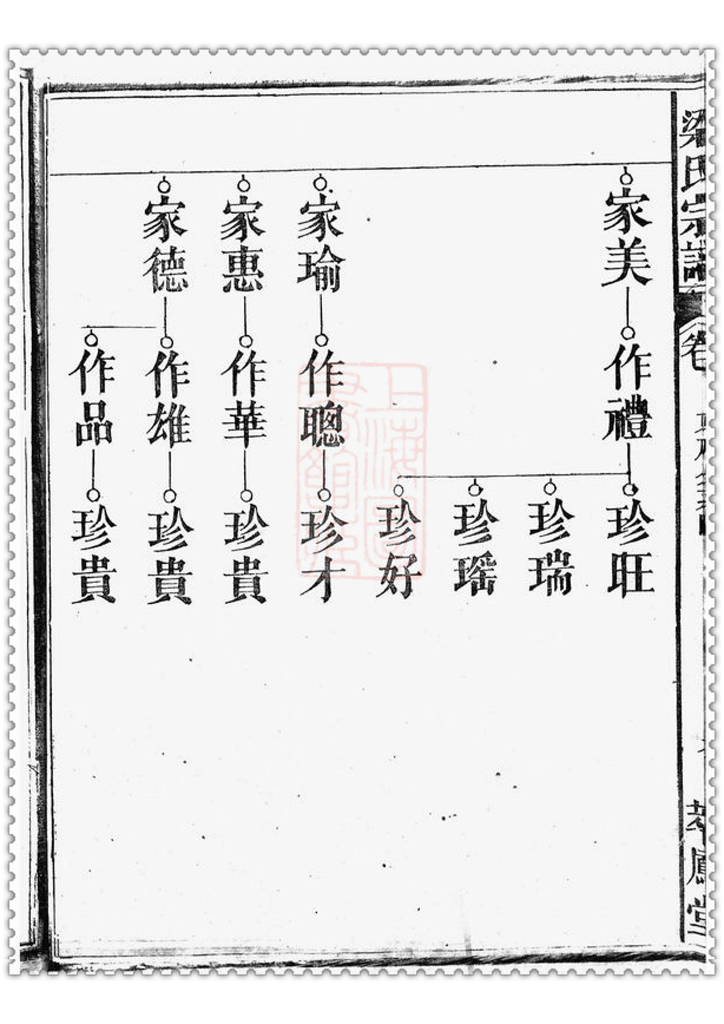 梁氏宗譜
卷
家美
作禮
珍旺
珍瑞
珍瑶
珍好
家瑜
作聰
珍才
家惠
作華
珍貴
家德
作雄
珍貴
作品
珍貴
上海圖
書館藏